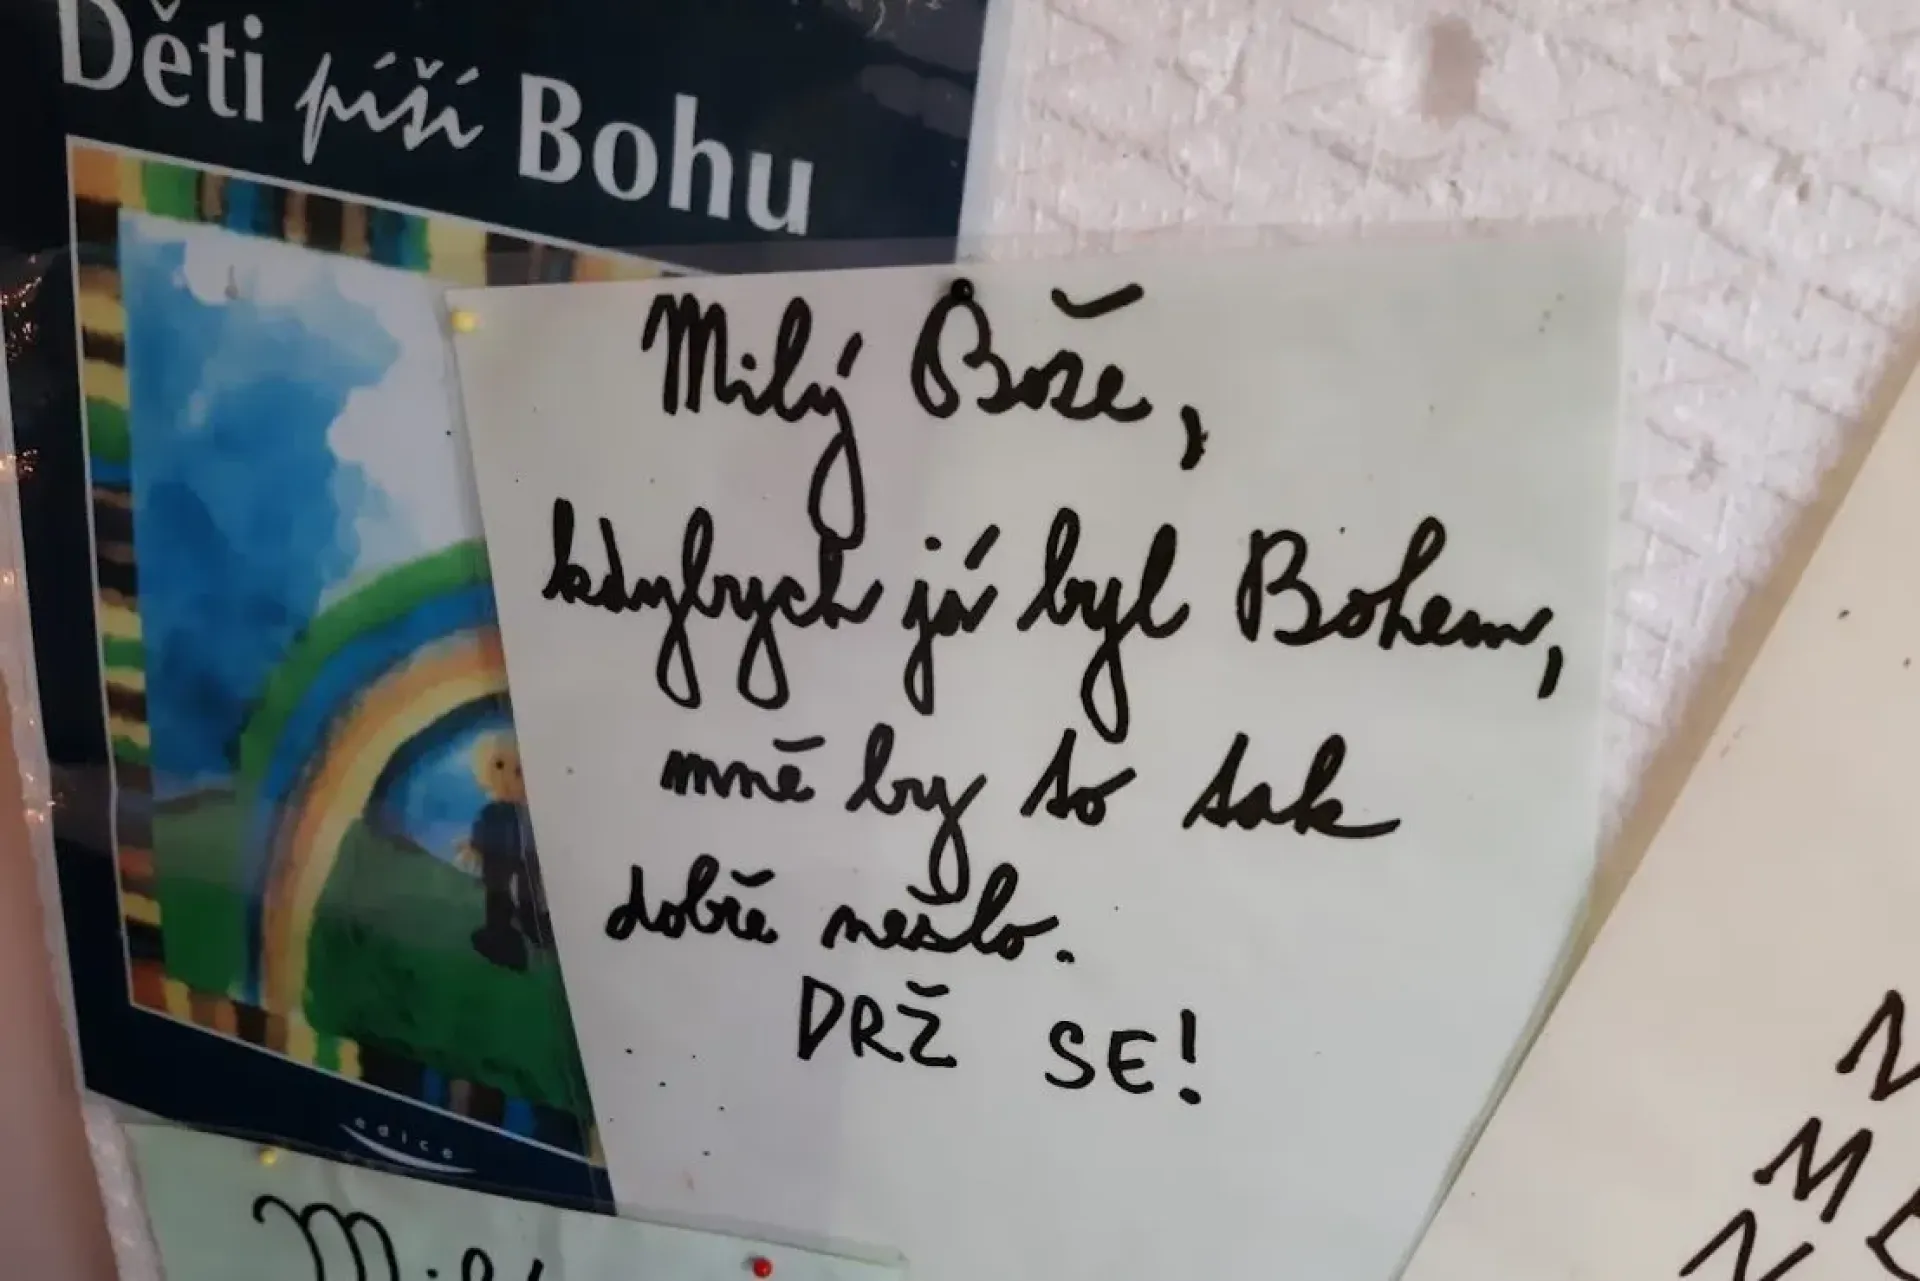 Děti píší Bohu
Milý Bože,
kdybych já byl Bohem,
mně by to tak
dobře nešlo.
DRŽ SE!
edice